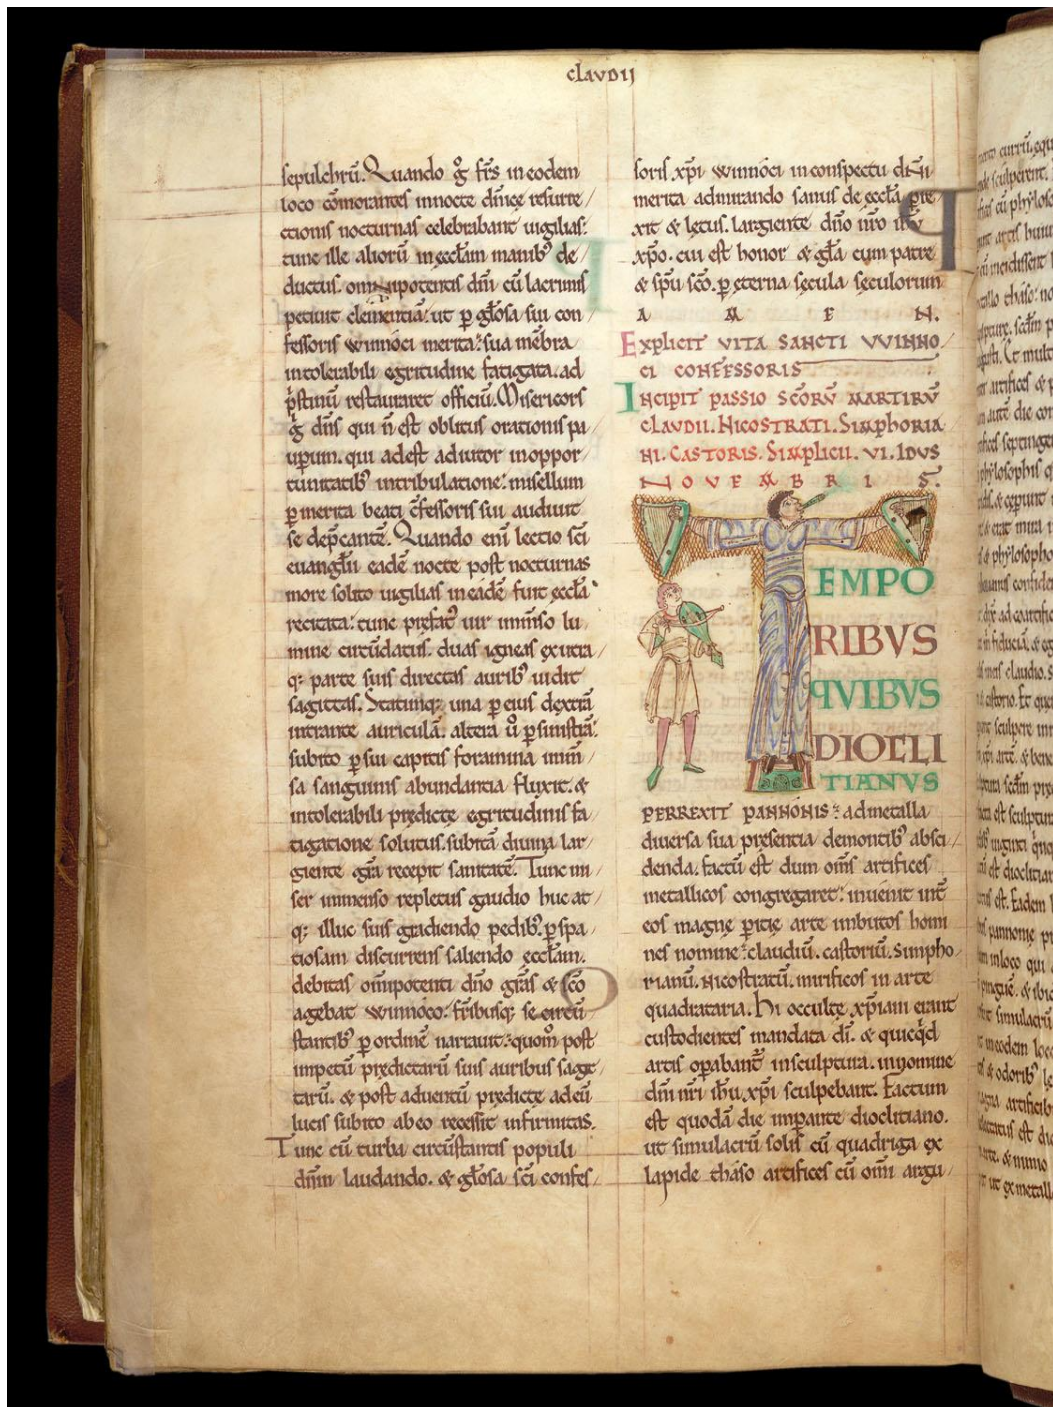 claudii
sepulchrū. Quando g̊ fr̄s in eodem
loco cōmorantes in nocte dn̄icę resurre/
ctionis nocturnas celebrabant uigilias:
tunc ille aliorū in ęccl̄am manib; de/
ductus. omnipotentis dn̄i cū lacrimis
petiuit clementiā: ut p̱ gl̄osa sui con/
fessoris winnoci merita: sua mēbra
intolerabili egritudine fatigata. ad
p̓stinū restauraret officiū. Misericors
g̊ dn̄s qui n̄ est oblitus orationis pau/
uperum. qui adest adiutor in oppor/
tunitatib; in tribulatione: misellum
p̱ merita beati c̄fessoris sui audiuit
se dep̄cantē. Quando eni lectio sc̄i
euangl̄ii eadē nocte post nocturnas
more solito uigilias in eadē fuit ęccl̄a
recitata: tunc pręfat᾽ uir immso lu/
mine circūdatus. duas igneas ex utra/
q; parte suis directas aurib; uidit
sagittas. Statimq; una p̱ eius dexterā
intrante auriculā. altera ů p̱ sinistrā:
subito p̱ sui capitis foramina imm̄/
sa sanguinis abundantia fluxit. &
intolerabili prędictę egritudinis fa/
tigatione solutus. subitā diuina lar/
giente gr̄a recepit sanitatē. Tunc mi/
ser immenso repletus gaudio huc at/
q; illuc suis gradiendo pedib;. p̱ spa/
tiosam discurrens saliendo ęccl̄am.
debitas om̄ipotenti dn̄o gr̄as & sc̄o
agebat winnoco: fr̄ibusq; se circū
stantib; p̱ ordinē narrauit: quom̊ post
impetū prędictarū suis auribus sagit/
tarū. & post aduentū prędictę ad eū
lucis subito ab eo recessit infirmitas.
Tunc cū turba circūstantis populi
dn̄m laudando. & gl̄osa sc̄i confes/
soris xp̄i winnoci in conspectu dn̄i
merita admirando sanus de ęccl̄a pre
xit & lętus. largiente dn̄o nr̄o ih̄u
xp̄o. cui est honor & gl̄a cum patre
& sp̄u sc̄o. p̱ eterna sęcula sęculorum
A M E N.
Explicit vita sancti vvinno
ci confessoris
Incipit passio sc̄orū martirū
claudii. Nicostrati. Simphoria
ni. Castoris. Simplicii. VI. Idus
Novembris.
TEMPO
RIBVS
QVIBVS
DIOCLI
TIANVS
perrexit pannonis: ad metalla
diuersa sua presentia de montib; absci/
denda. factū est dum om̄s artifices
metallicos congregaret: inuenit int̄
eos magnę p̱itię arte imbutos homi
nes nomine: claudiū. castoriū. simpho/
rianū. nicostratū. mirificos in arte
quadrataria. Hi occultę xp̄iani erant
custodientes mandata dī. & quicq̓d
artis op̱abant̄ in sculptura. in nomine
dn̄i nr̄i ih̄u xp̄i sculpebant. Factum
est quodā die imp̱ante dioclitiano.
ut simulacrū solis cū quadriga ex
lapide thaso artifices cū om̄i argu/